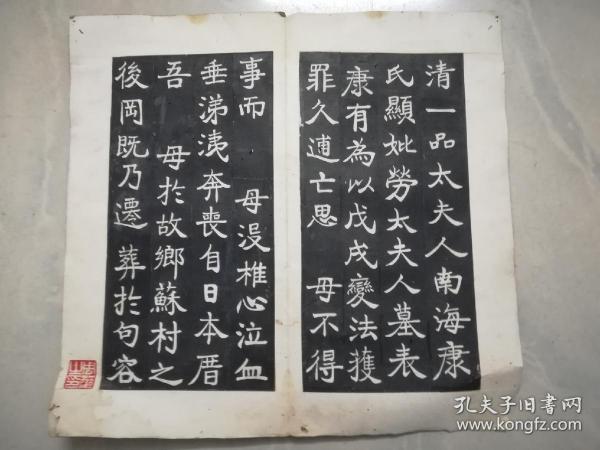 清一品太夫人南海康
氏顯妣勞太夫人墓表
康有為以戊戌變法獲
罪久逋亡思 母不得
事而 母没椎心泣血
垂涕洟奔喪自日本厝
吾 母於故鄉蘇村之
後岡既乃遷葬於句容
孔夫子旧書网
www.kongfz.com